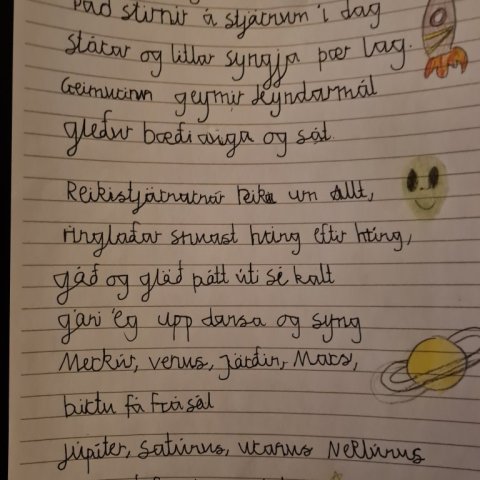 Það stirnir á stjátrnum í dag
státar og litlar syngja þær lag.
Geimurinn geymir leyndarmál
gleður bæði auga og sál
Reikistjátnatnár reika um allt,
ringlaðar snúast hring eftir hring,
gáð og glað þátt úti sé kalt
gári ég upp dansa og syng
Merkúr, venus, járðin, Mars,
birtu fá frá sál
júpíter, satúrnus, uranus Neptúnus